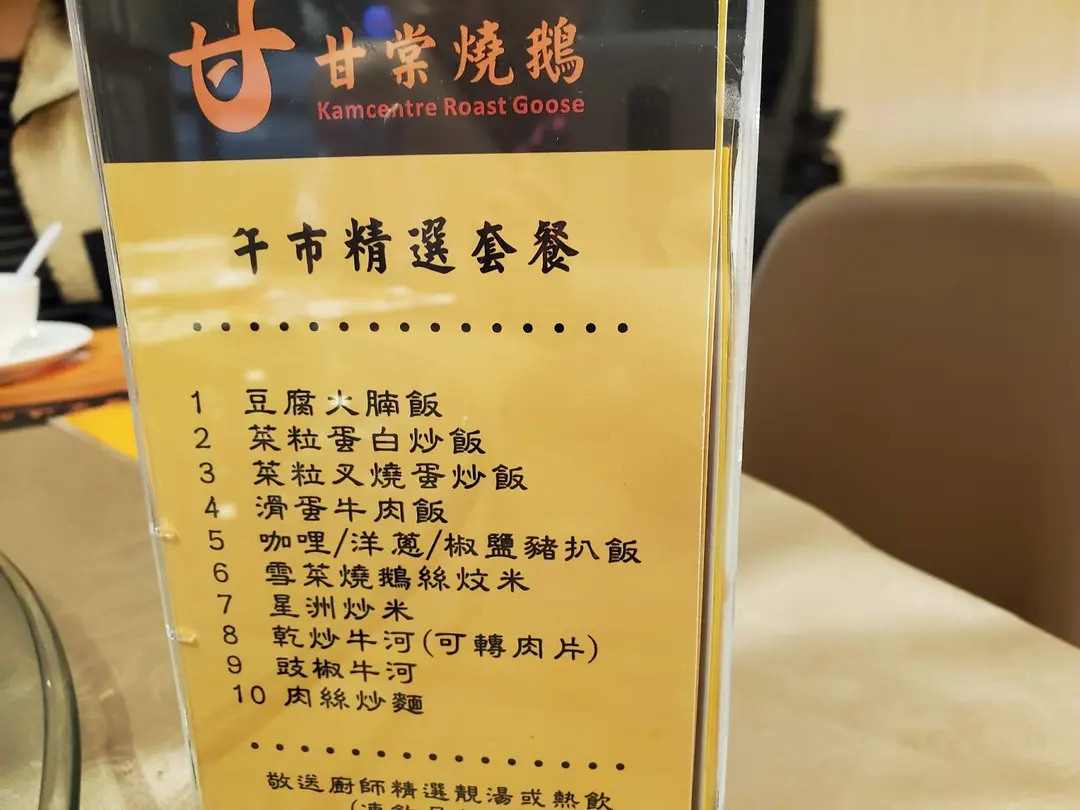 甘
甘棠燒鵝
Kamcentre Roast Goose
午市精選套餐
1 豆腐火腩飯
2 菜粒蛋白炒飯
3 菜粒叉燒蛋炒飯
4 滑蛋牛肉飯
5 咖哩/洋蔥/椒鹽豬扒飯
6 雪菜燒鵝絲炆米
7 星洲炒米
8 乾炒牛河(可轉肉片)
9 豉椒牛河
10 肉絲炒麵
敬送廚師精選靚湯或熱飲